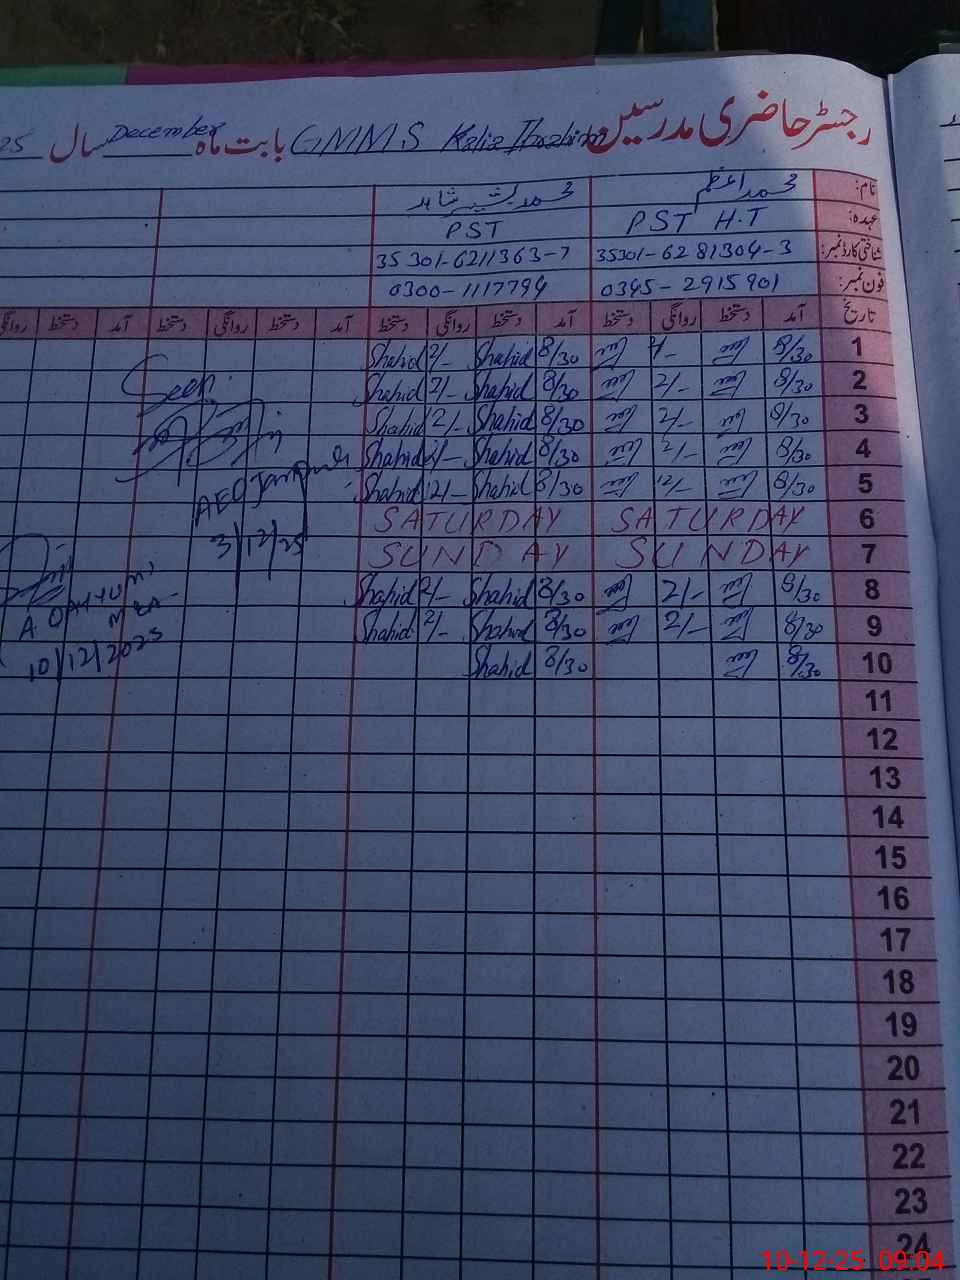 رجسٹر حاضری مدرسین GMMS بابت ماہ December سال 25
نام: محمد اعظم محمد بشیر شاہد
عہدہ: PST H.T PST
شناختی کارڈ نمبر: 35301-6281304-3 35301-6211363-7
فون نمبر: 0345-2915901 0300-1117794
تاریخ آمد دستخط روانگی دستخط آمد دستخط روانگی دستخط آمد دستخط روانگی دستخط آمد دستخط روانگی
1 8/30 2/- 8/30 Shahid 2/- Shahid
2 8/30 2/- 8/30 Shahid 2/- Shahid
3 8/30 2/- 8/30 Shahid 2/- Shahid
4 8/30 2/- 8/30 Shahid 2/- Shahid
5 8/30 12/- 8/30 Shahid 12/- Shahid
6 SATURDAY SATURDAY
7 SUNDAY SUNDAY
8 8/30 2/- 8/30 Shahid 2/- Shahid
9 8/30 2/- 8/30 Shahid 2/- Shahid
10 8/30 8/30 Shahid
11
12
13
14
15
16
17
18
19
20
21
22
23
24
Seen
AEO
3/12/25
10/12/2025
10-12-25 09:04